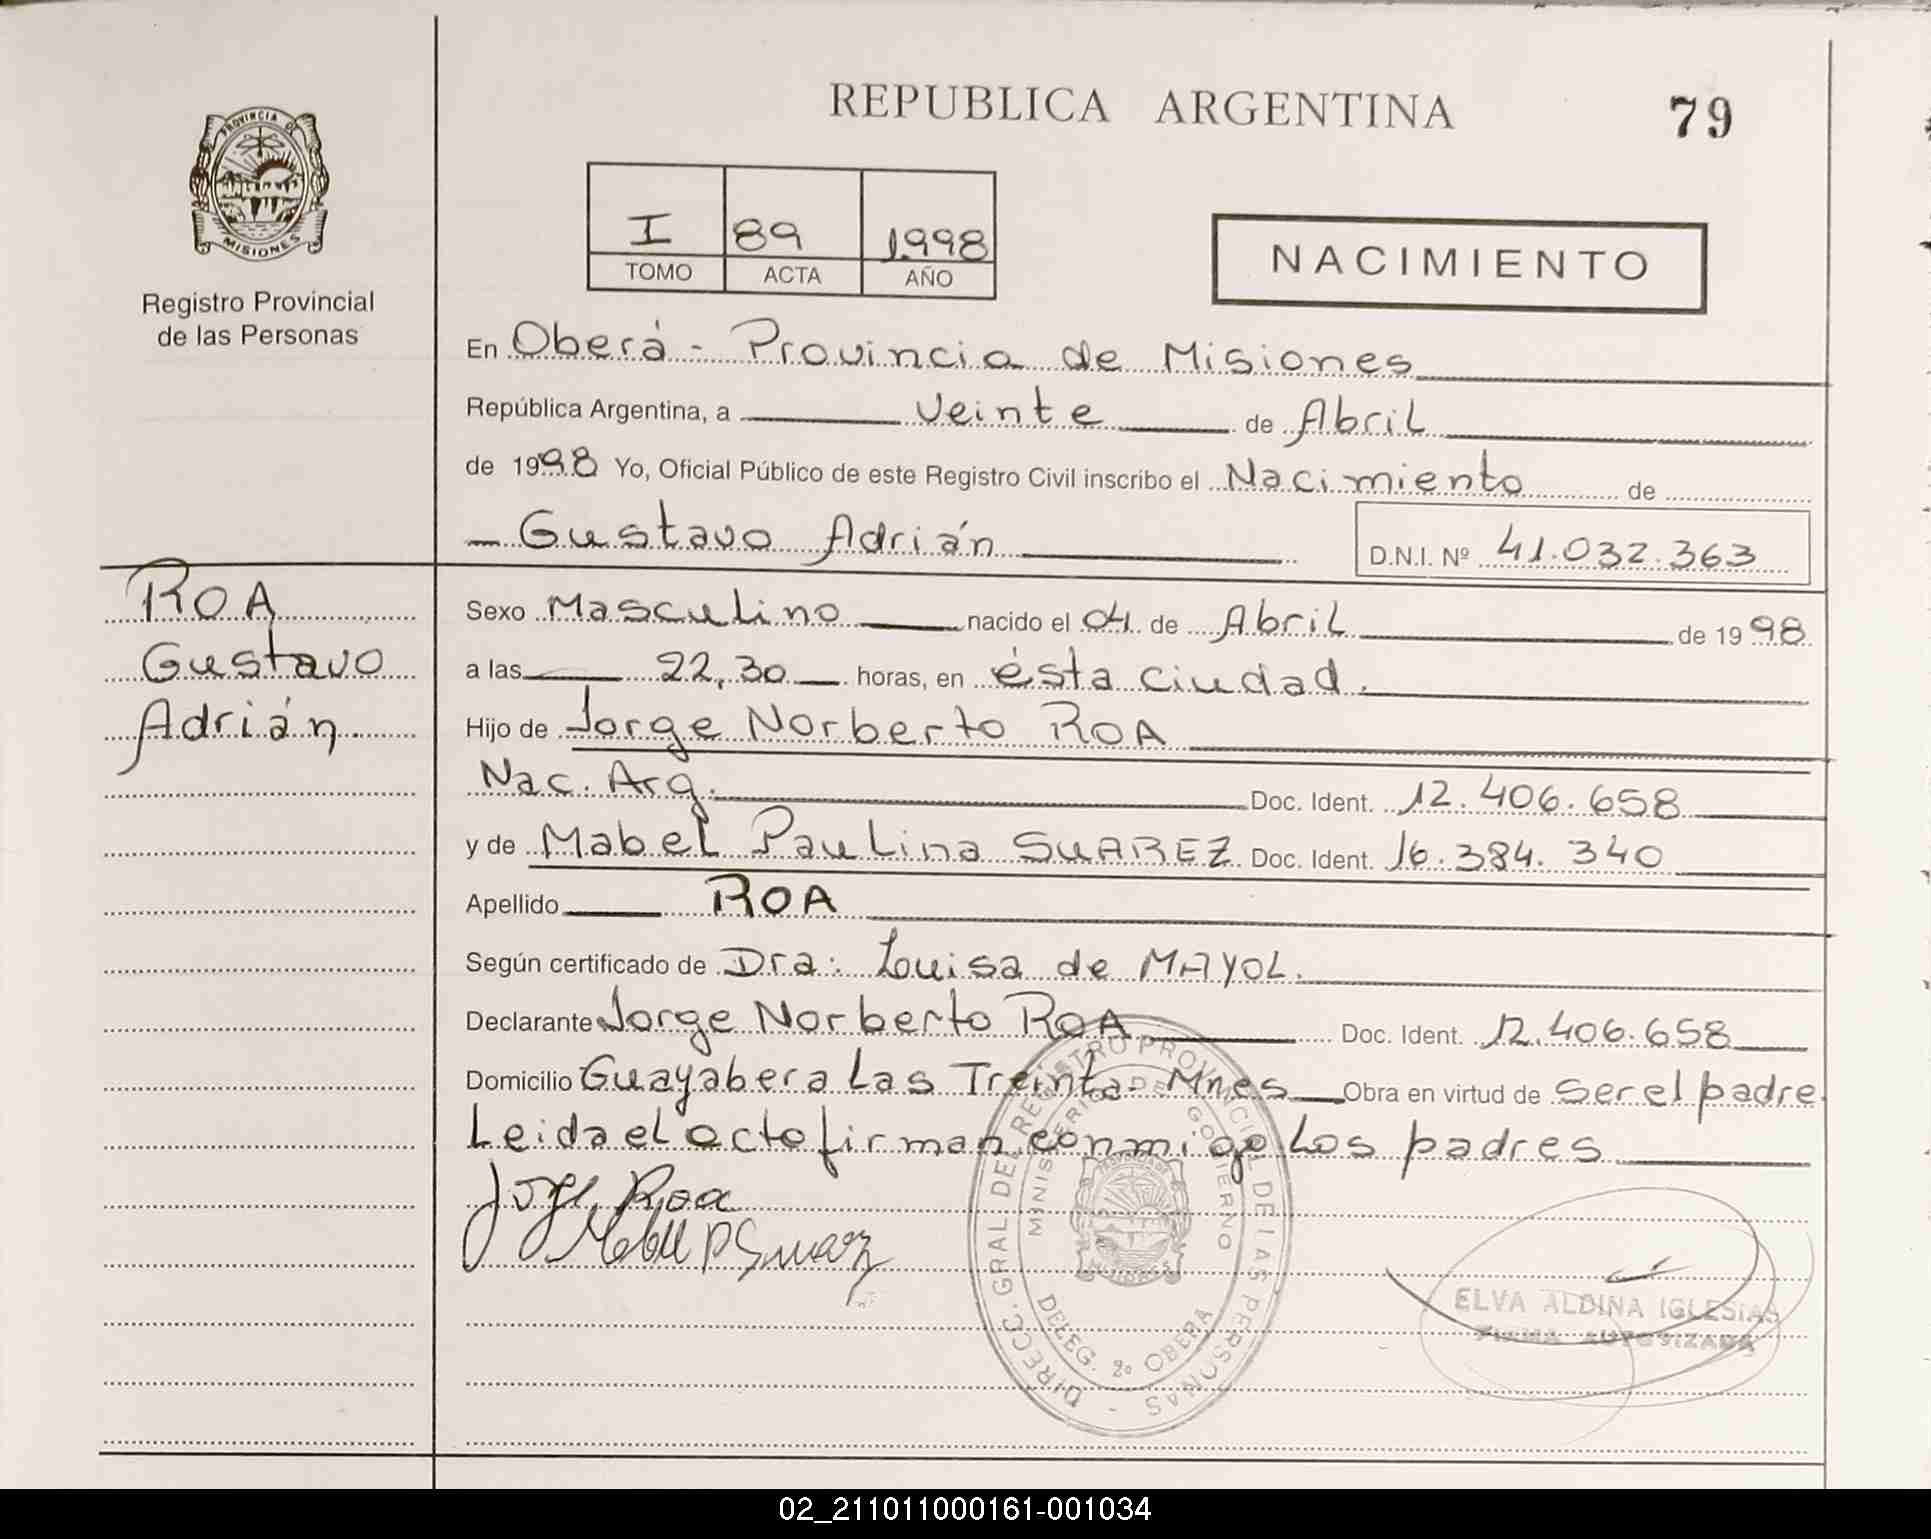 REPUBLICA ARGENTINA
79
PROVINCIA DE
MISIONES
Registro Provincial
de las Personas
I 89 1998
TOMO ACTA AÑO
NACIMIENTO
En Oberá - Provincia de Misiones
República Argentina, a Veinte de Abril
de 1998 Yo, Oficial Público de este Registro Civil inscribo el Nacimiento de
Gustavo Adrián
D.N.I. Nº 41.032.363
ROA
Gustavo
Adrián
Sexo Masculino nacido el 04 de Abril de 1998
a las 22,30 horas, en ésta ciudad.
Hijo de Jorge Norberto ROA
Nac. Arg. Doc. Ident. 12.406.658
y de Mabel Paulina SUAREZ Doc. Ident. 16.384.340
Apellido ROA
Según certificado de Dra: Louisa de MAYOL.
Declarante Jorge Norberto ROA Doc. Ident. 12.406.658
Domicilio Guayabera Las Treinta - Mnes Obra en virtud de ser el padre.
Leida el acta firman conmigo Los padres
Jorge Roa
Mabel P Suarez
DIRECC. GRAL DEL REGISTRO PROVINCIAL DE LAS PERSONAS -
MINISTERIO DE GOBIERNO
DELEG. 2º OBERA
ELVA ALDINA IGLESIAS
FIRMA AUTORIZADA
02_211011000161-001034